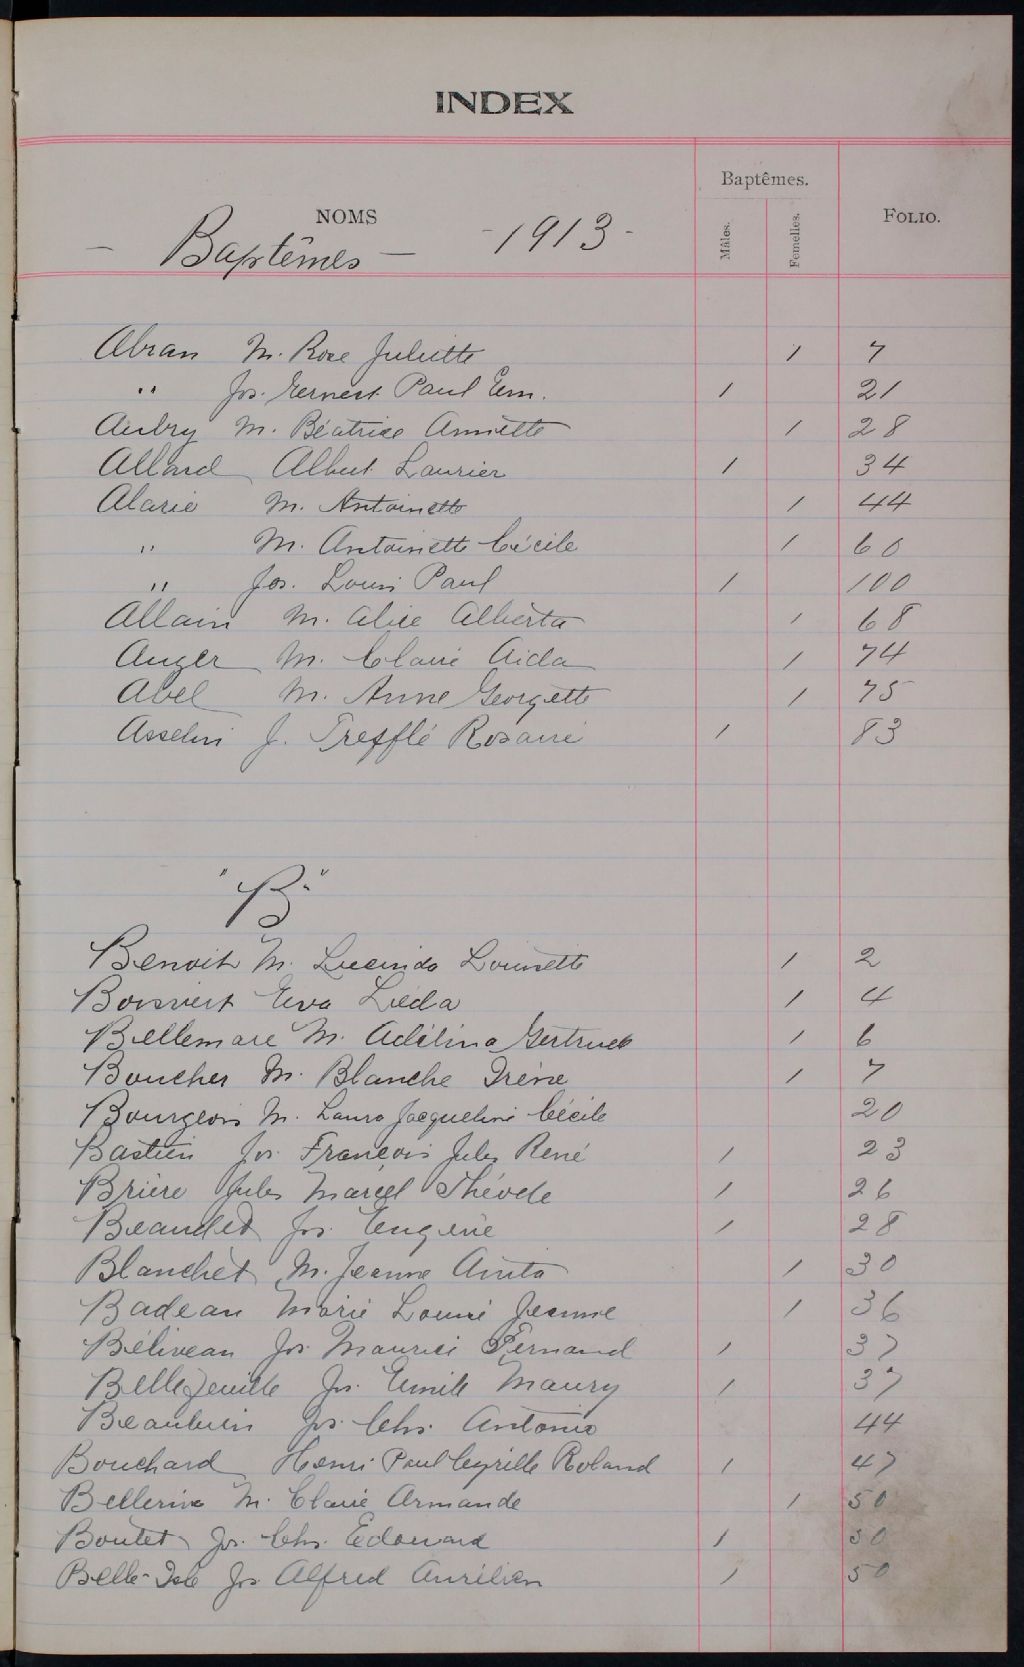 INDEX
NOMS
Baptêmes.
Mâles.
Femelles.
FOLIO.
— Baptêmes — - 1913 -
Abran M. Rose Juliette 1 7
" Jos. Ernest Paul Em. 1 21
Aubry M. Béatrice Annette 1 28
Allard Albert Laurier 1 34
Alarie M. Antoinette 1 44
" M. Antoinette Cécile 1 60
" Jos. Louis Paul 1 100
Allain M. Alice Alberta 1 68
Auger M. Claire Aida 1 74
Abel M. Anne Georgette 1 75
Asselin J. Trefflé Rosaire 1 83
"B"
Benoit M. Lucinda 1 2
Boisvert Eva Léda 1 4
Bellemare M. Adélina Gertrude 1 6
Boucher M. Blanche Irène 1 7
Bourgeois M. Laura Jacqueline Cécile 20
Bastien Jos. François Jules René 1 23
Brière Jules Marcel 1 26
Beaudet Jos. Eugène 1 28
Blanchet M. Jeanne Anita 1 30
Badeau Marie Louise Jeanne 1 36
Béliveau Jos. Maurice Fernand 1 37
Bellefeuille Jos. Emile Maury 1 37
Beaubien Jos. Chs. Antonio 44
Bouchard Henri Paul Cyrille Roland 1 47
Bellerive M. Claire Armande 1 50
Boutet Jos. Chs. Edouard 1 50
Belle-Isle Jos Alfred Aurélien 1 50